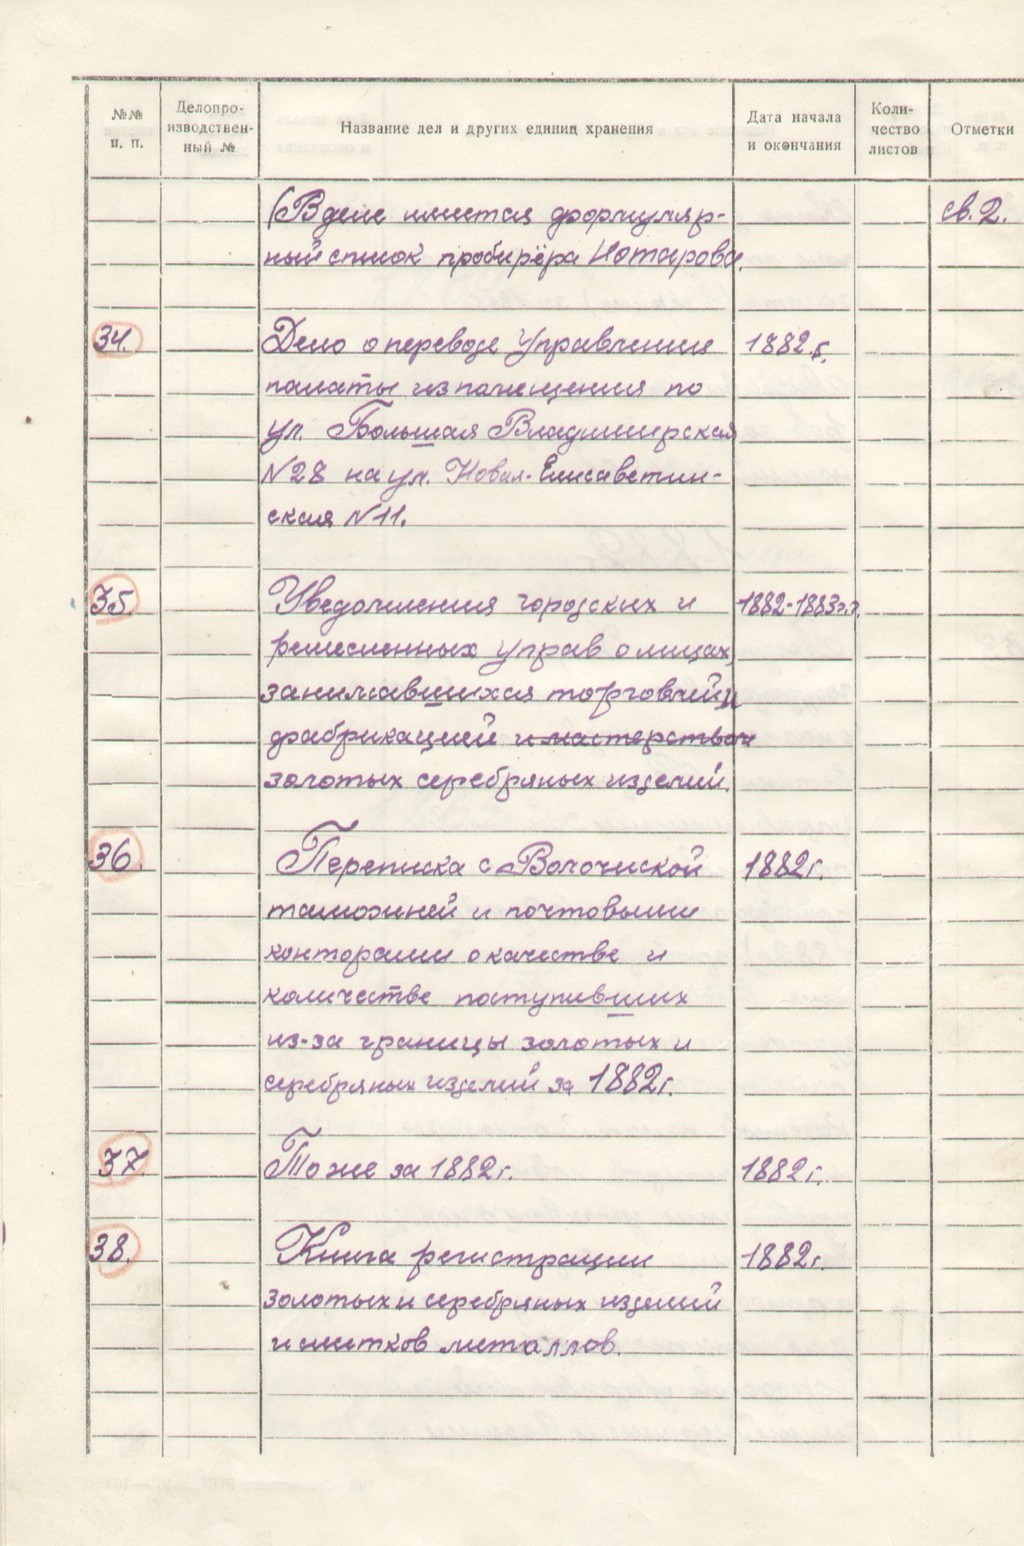 №№ п. п.
Делопро-
изводствен-
ный №
Название дел и других единиц хранения
Дата начала
и окончания
Коли-
чество
листов
Отметки
(В деле имеется формуляр- св. 2.
ный список пробирёра Нотарова.
34. Дело о переводе Управления 1882 г.
палаты из помещения по
ул. Большая Владимирская
№28 на ул. Новая-Елисаветин-
ская №11.
35. Уведомления городских и 1882-1883 г.г.
ремесленных управ о лицах,
занимавшихся торговлей и
фабрикацией и мастерством
золотых серебряных изделий.
36. Переписка с Волочиской 1882 г.
таможней и почтовыми
конторами о качестве и
количестве поступивших
из-за границы золотых и
серебряных изделий за 1882 г.
37. То же за 1882 г. 1882 г.
38. Книга регистрации 1882 г.
золотых и серебряных изделий
и слитков металлов.